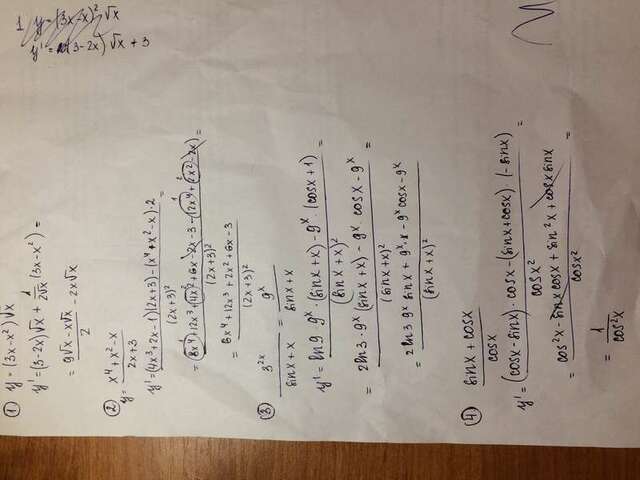 ① y = (3x-x²)√x
y' = (3-2x)√x + 1/(2√x) (3x-x²) =
= (9√x - x√x)/2 - 2x√x
② y = (x⁴+x²-x)/(2x+3)
y' = ((4x³+2x-1)(2x+3)-(x⁴+x²-x)·2)/(2x+3)² =
= (8x⁴+12x³+4x²+6x-2x-3-(2x⁴+2x²-2x))/(2x+3)² =
= (6x⁴+12x³+2x²+6x-3)/(2x+3)²
③ 3²ˣ/(sinx+x) = 9ˣ/(sinx+x)
y' = (ln9·9ˣ·(sinx+x)-9ˣ·(cosx+1))/(sinx+x)² =
= (2ln3·9ˣ(sinx+x)-9ˣ·cosx-9ˣ)/(sinx+x)² =
= (2ln3 9ˣ sinx + 9ˣ·x - 9ˣcosx-9ˣ)/(sinx+x)²
④ (sinx+cosx)/cosx
y' = ((cosx-sinx)·cosx-(sinx+cosx)·(-sinx))/cosx² =
= (cos²x-sinxcosx+sin²x+cosxsinx)/cosx² =
= 1/cos²x
1 y=(3x-x)²√x
y'=(3-2x)√x+3